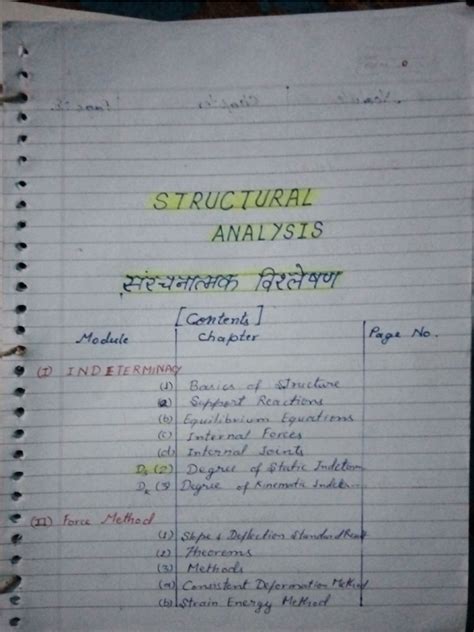 STRUCTURAL
ANALYSIS
संरचनात्मक विश्लेषण
[Contents]
Module Chapter Page No.
(I) INDETERMINACY
(1) Basics of Structure
(a) Support Reactions
(b) Equilibrium Equations
(c) Internal Forces
(d) Internal Joints
Ds (2) Degree of Static Indeterm
Dk (3) Degree of Kinematic Indeter
(II) Force Method
(1) Slope & Deflection Standard
(2) Theorems
(3) Methods
(a) Consistent Deformation Method
(b) Strain Energy Method